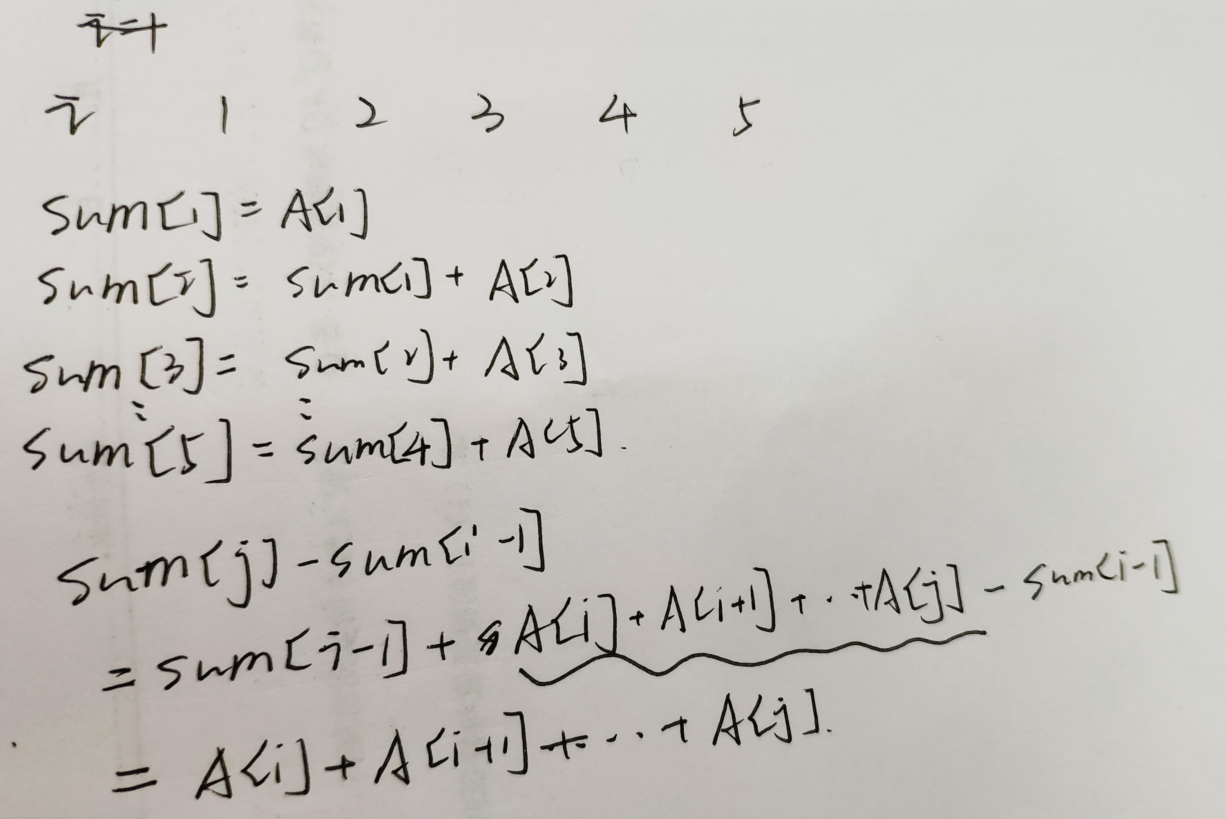 i 1 2 3 4 5
sum[1] = A[1]
sum[2] = sum[1] + A[2]
sum[3] = sum[2] + A[3]
⋮ ⋮
sum[5] = sum[4] + A[5].
sum[j] - sum[i-1]
= sum[i-1] + A[i] + A[i+1] + ⋯ + A[j] - sum[i-1]
= A[i] + A[i+1] + ⋯ + A[j].